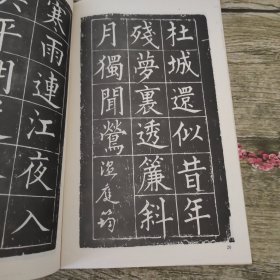 杜城還似昔年
殘夢裏透簾斜
月獨聞鶯溫庭筠
寒雨連江夜入
平明送
20